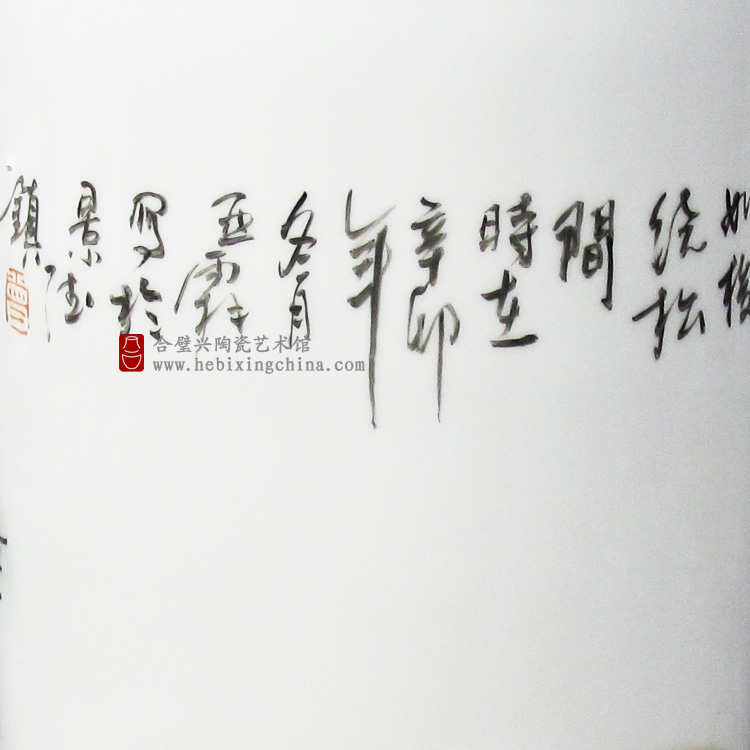 绕松
間
時在
辛卯
年
冬月
亚霖
写於
景德
鎮
合璧兴陶瓷艺术馆
www.hebixingchina.com